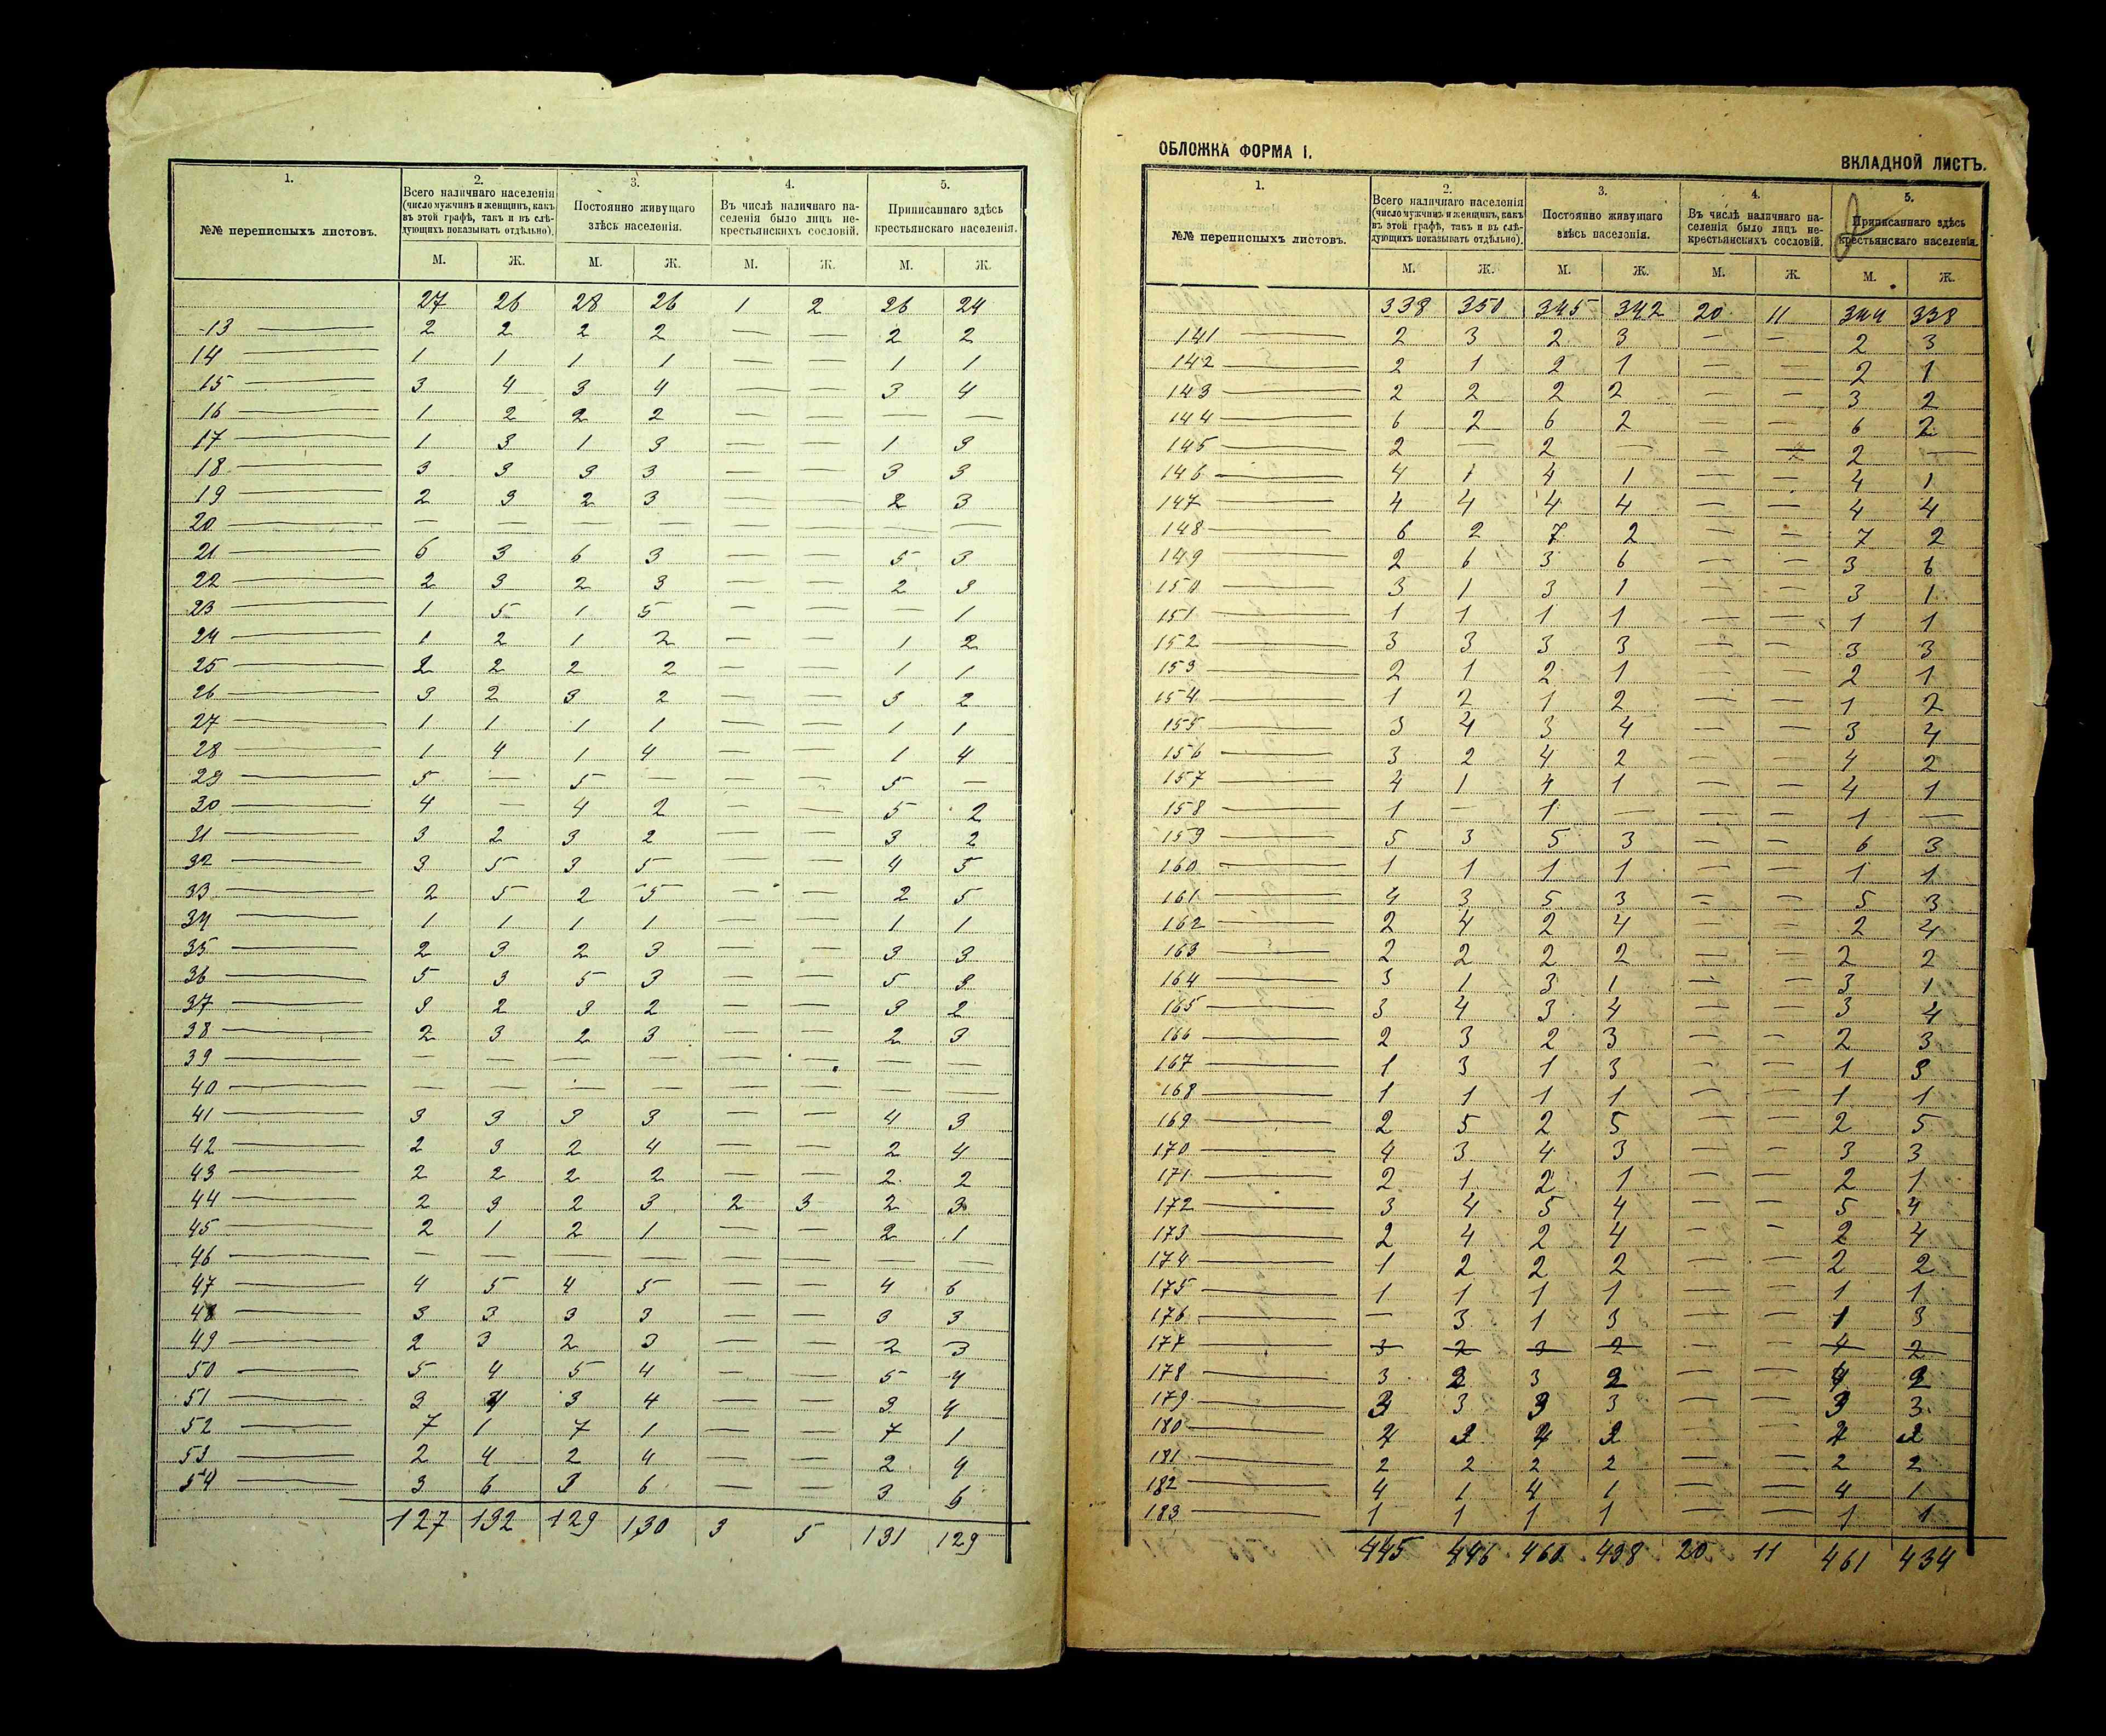 1. 2. 3. 4. 5.
№№ переписныхъ листовъ. Всего наличнаго населенія (число мужчинъ и женщинъ, какъ въ этой графѣ, такъ и въ слѣдующихъ показывать отдѣльно). Постоянно живущаго здѣсь населенія. Въ числѣ наличнаго населенія было лицъ не-крестьянскихъ сословій. Приписаннаго здѣсь крестьянскаго населенія.
М. Ж. М. Ж. М. Ж. М. Ж.
27 26 28 26 1 2 26 24
13 — 2 2 2 2 — — 2 2
14 — 1 1 1 1 — — 1 1
15 — 3 4 3 4 — — 3 4
16 — 1 2 2 2 — — — —
17 — 1 3 1 3 — — 1 3
18 — 3 3 3 3 — — 3 3
19 — 2 3 2 3 — — 2 3
20 — — — — — — — — —
21 — 6 3 6 3 — — 5 3
22 — 2 3 2 3 — — 2 3
23 — 1 5 1 5 — — 1
24 — 1 2 1 2 — — 1 2
25 — 2 2 2 2 — — 1 1
26 — 3 2 3 2 — — 3 2
27 — 1 1 1 1 — — 1 1
28 — 1 4 1 4 — — 1 4
29 — 5 — 5 — — — 5 —
30 — 4 — 4 2 — — 5 2
31 — 3 2 3 2 — — 3 2
32 — 3 5 3 5 — — 4 5
33 — 2 5 2 5 — — 2 5
34 — 1 1 1 1 — — 1 1
35 — 2 3 2 3 — — 3 3
36 — 5 3 5 3 — — 5 3
37 — 3 2 3 2 — — 3 2
38 — 2 3 2 3 — — 2 3
39 — — — — — — — — —
40 — — — — — — — — —
41 — 3 3 3 3 — — 4 3
42 — 2 3 2 4 — — 2 4
43 — 2 2 2 2 — — 2 2
44 — 2 3 2 3 2 3 2 3
45 — 2 1 2 1 — — 2 1
46 — — — — — — — — —
47 — 4 5 4 5 — — 4 6
48 — 3 3 3 3 — — 3 3
49 — 2 3 2 3 — — 2 3
50 — 5 4 5 4 — — 5 4
51 — 3 4 3 4 — — 3 4
52 — 7 1 7 1 — — 7 1
53 — 2 4 2 4 — — 2 4
54 — 3 6 3 6 — — 3 6
127 132 129 130 3 5 131 129
ОБЛОЖКА ФОРМА I.
ВКЛАДНОЙ ЛИСТЪ.
1. 2. 3. 4. 5.
№№ переписныхъ листовъ. Всего наличнаго населенія (число мужчинъ и женщинъ, какъ въ этой графѣ, такъ и въ слѣдующихъ показывать отдѣльно). Постоянно живущаго здѣсь населенія. Въ числѣ наличнаго населенія было лицъ не-крестьянскихъ сословій. Приписаннаго здѣсь крестьянскаго населенія.
М. Ж. М. Ж. М. Ж. М. Ж.
338 350 345 342 20 11 344 338
141 — 2 3 2 3 — — 2 3
142 — 2 1 2 1 — — 2 1
143 — 2 2 2 2 — — 3 2
144 — 6 2 6 2 — — 6 2
145 — 2 — 2 — — — 2 —
146 — 4 1 4 1 — — 4 1
147 — 4 4 4 4 — — 4 4
148 — 6 2 7 2 — — 7 2
149 — 2 6 3 6 — — 3 6
150 — 3 1 3 1 — — 3 1
151 — 1 1 1 1 — — 1 1
152 — 3 3 3 3 — — 3 3
153 — 2 1 2 1 — — 2 1
154 — 1 2 1 2 — — 1 2
155 — 3 4 3 4 — — 3 4
156 — 3 2 4 2 — — 4 2
157 — 4 1 4 1 — — 4 1
158 — 1 — 1 — — — 1 —
159 — 5 3 5 3 — — 6 3
160 — 1 1 1 1 — — 1 1
161 — 4 3 5 3 — — 5 3
162 — 2 4 2 4 — — 2 4
163 — 2 2 2 2 — — 2 2
164 — 3 1 3 1 — — 3 1
165 — 3 4 3 4 — — 3 4
166 — 2 3 2 3 — — 2 3
167 — 1 3 1 3 — — 1 3
168 — 1 1 1 1 — — 1 1
169 — 2 5 2 5 — — 2 5
170 — 4 3 4 3 — — 3 3
171 — 2 1 2 1 — — 2 1
172 — 3 4 5 4 — — 5 4
173 — 2 4 2 4 — — 2 4
174 — 1 2 2 2 — — 2 2
175 — 1 1 1 1 — — 1 1
176 — — 3 1 3 — — 1 3
177 — 3 2 3 2 — — 4 2
178 — 3 2 3 2 — — 4 2
179 — 3 3 3 3 — — 3 3
180 — 4 2 4 2 — — 4 2
181 — 2 2 2 2 — — 2 2
182 — 4 1 4 1 — — 4 1
183 — 1 1 1 1 — — 1 1
445 446 460 438 20 11 461 434